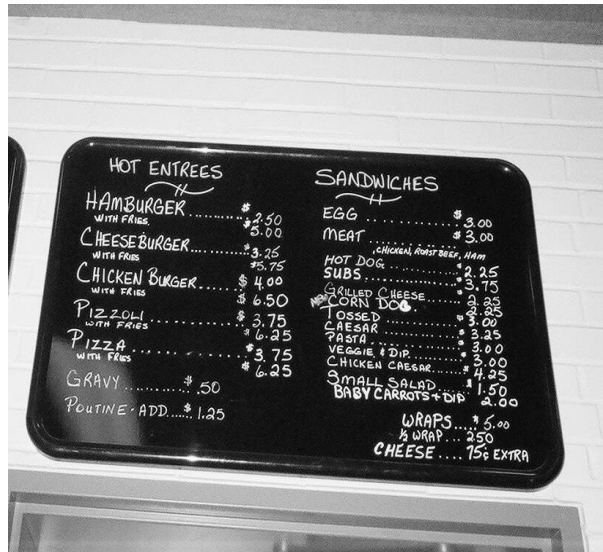 HOT ENTREES
HAMBURGER .......... $2.50
WITH FRIES. $5.00
CHEESEBURGER ...... $3.25
WITH FRIES $5.75
CHICKEN BURGER ... $4.00
WITH FRIES $6.50
PIZZOLI ............ $3.75
WITH FRIES $6.25
PIZZA ............ $3.75
WITH FRIES $6.25
GRAVY ........... $.50
POUTINE - ADD ..... $1.25
SANDWICHES
EGG ............ $3.00
MEAT ............ $3.00
CHICKEN, ROAST BEEF, HAM
HOT DOG ............ $2.25
SUBS ............ $3.75
GRILLED CHEESE ..... 2.25
CORN DOG 2.25
TOSSED ............ $3.00
CAESAR ............ $3.25
PASTA ............ $3.00
VEGGIE & DIP ........ $3.00
CHICKEN CAESAR ..... $4.25
SMALL SALAD ..... $1.50
BABY CARROTS + DIP 2.00
WRAPS .... $5.00
½ WRAP ... 2.50
CHEESE .... 75¢ EXTRA